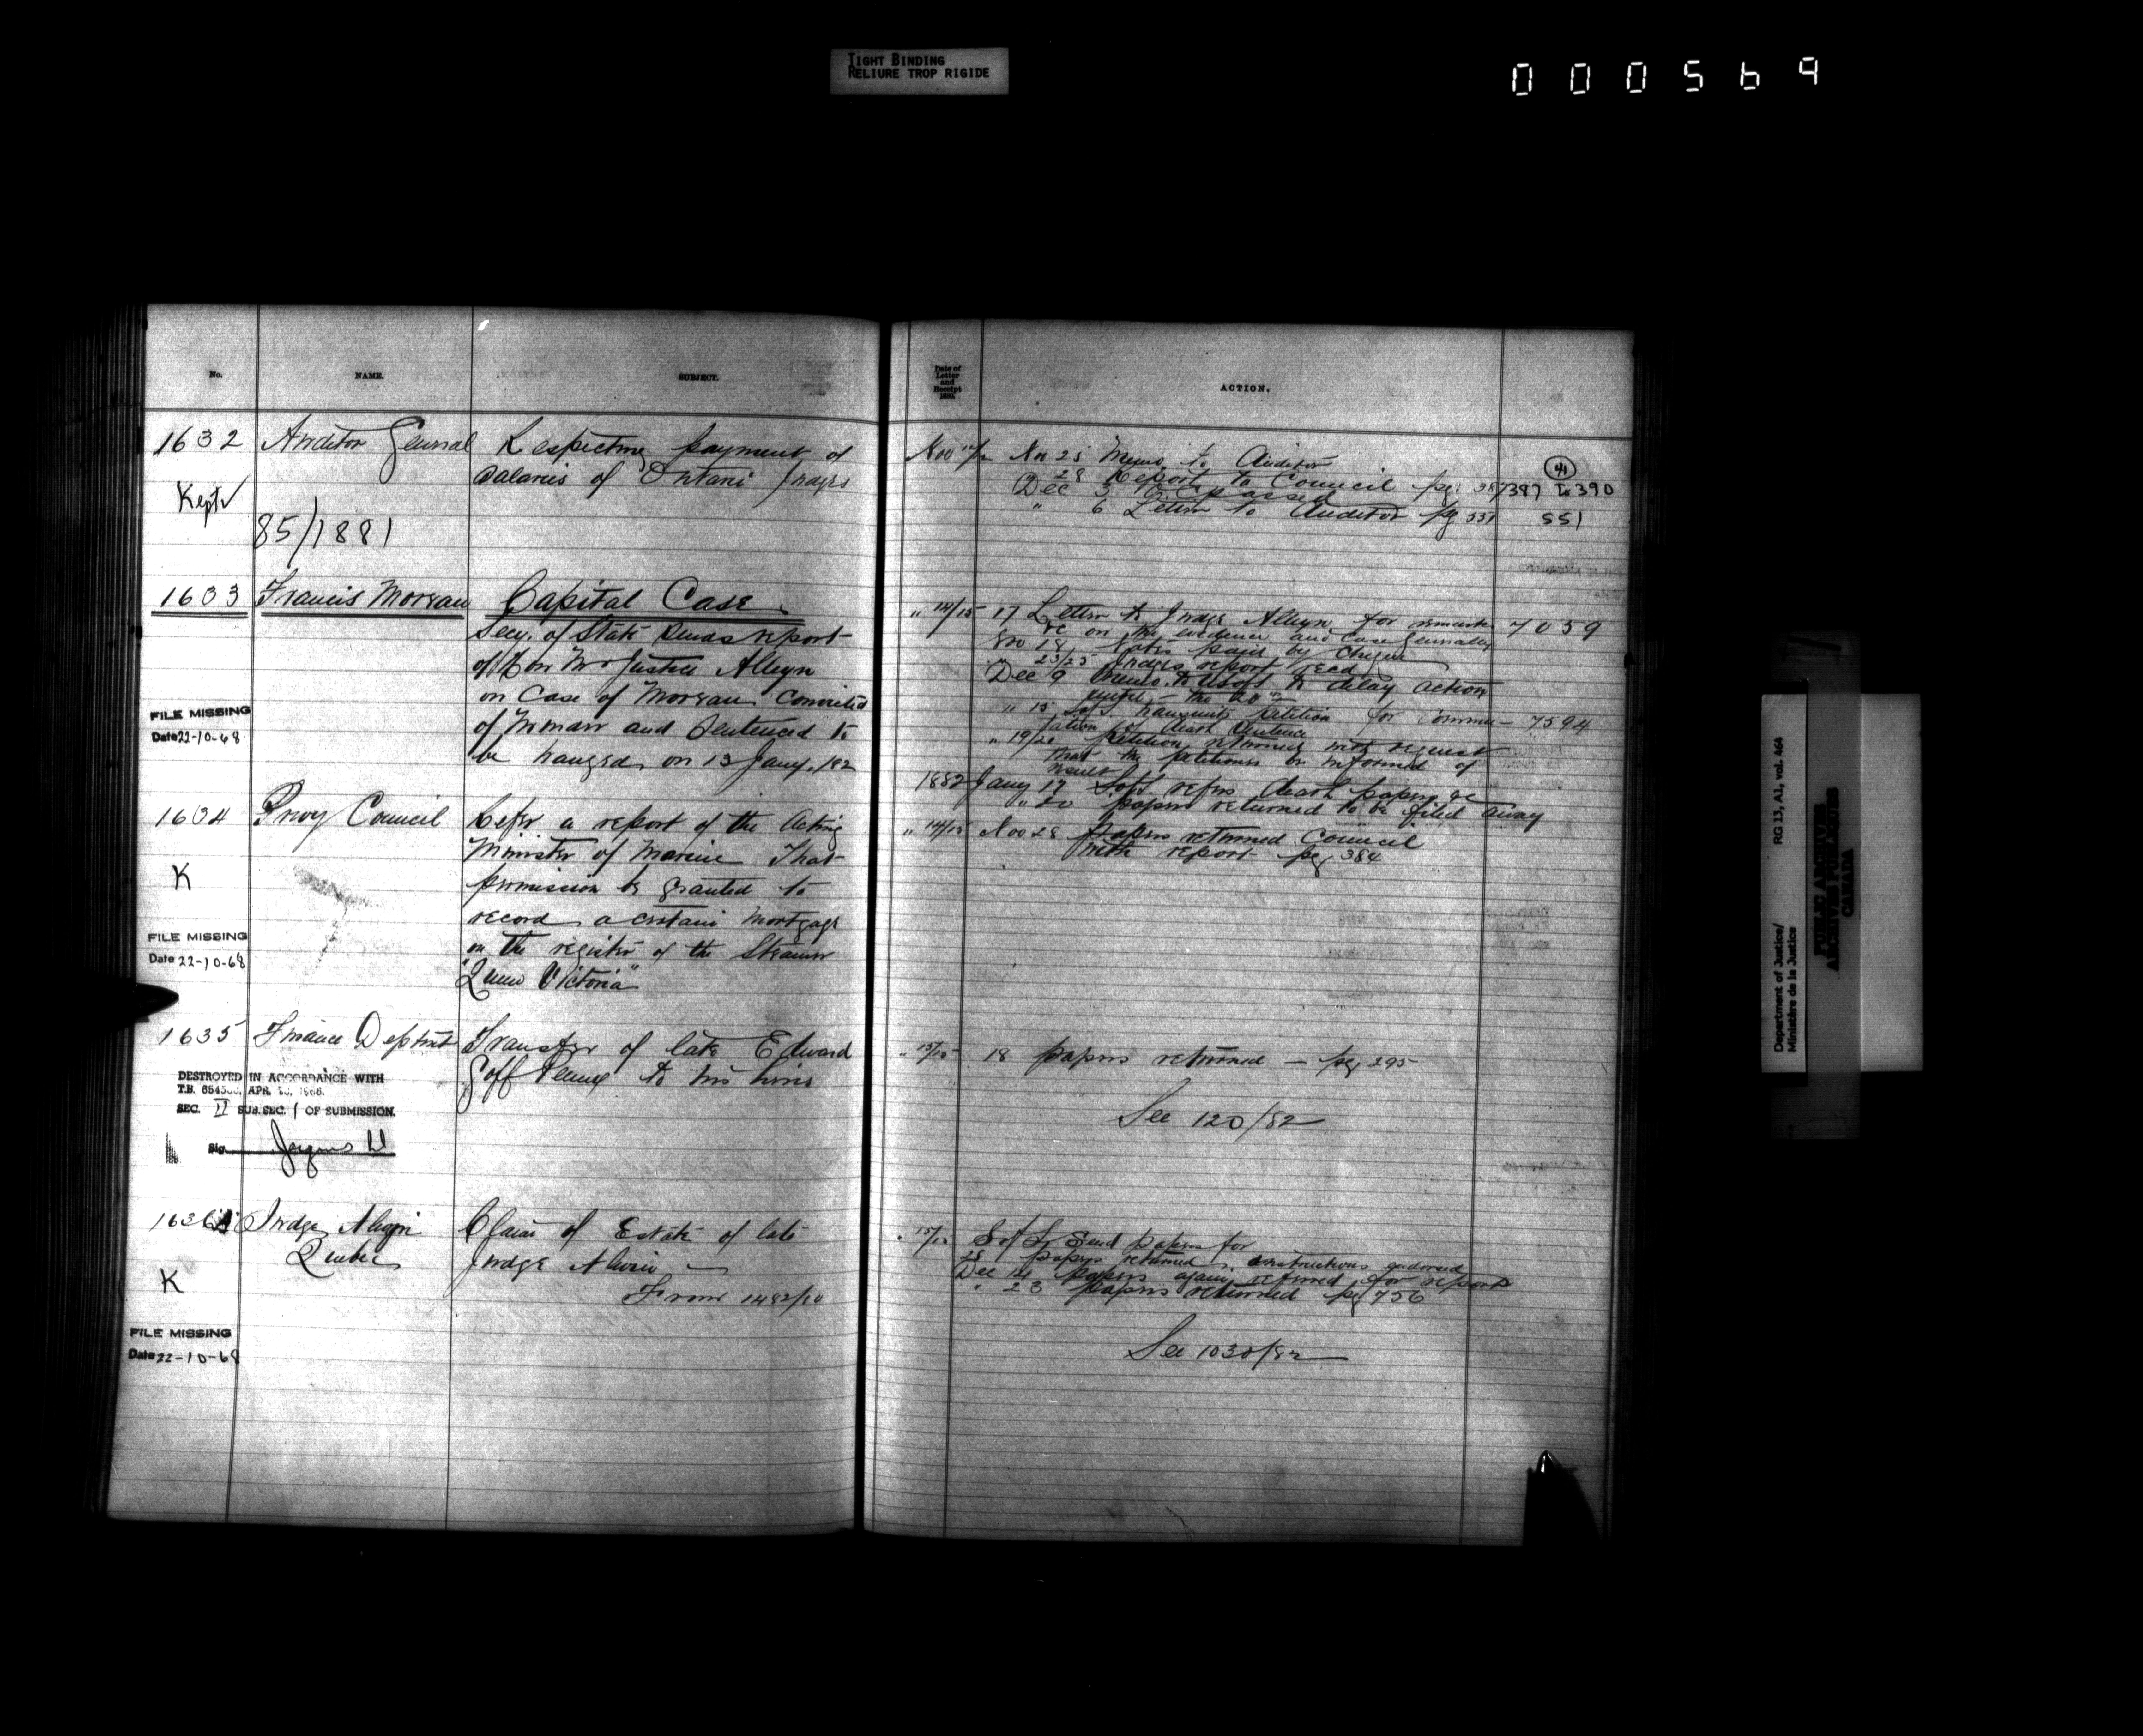 TIGHT BINDING
RELIURE TROP RIGIDE
000569
No.
NAME.
SUBJECT.
1632 Auditor General Respecting payment of
salaries of Ontario Judges
Kept
85/1881
1633 Francis Morgan Capital Case
Secy. of State sends report
of Hon Mr Justice Alleyn
on Case of Morgan Convicted
of Murder and Sentenced to
be hanged on 13 Jany. /82
FILE MISSING
Date 22-10-68
1634 Privy Council Refer a report of the Acting
Minister of Marine That
permission be granted to
record a certain Mortgage
on the register of the Steamer
"Queen Victoria"
K
FILE MISSING
Date 22-10-68
1635 Finance Deptmt Transfer of late Edward
Goff to his heirs
DESTROYED IN ACCORDANCE WITH
T.B. APR. 1966.
SEC. II SUB.SEC. 1 OF SUBMISSION.
Sig.
1636 Judge Alleyn Claim of Estate of late
Quebec Judge Alwin
From 1482/80
K
FILE MISSING
Date 22-10-68
Date of
Letter
and
Receipt
188
ACTION.
Nov Nov 25 Memo to Auditor
28 Report to Council pg. 387 387 to 390
Dec 3 O.C. passed
" 6 Letter to Auditor pg 551 551
" 14/15 17 Letter to Judge Alleyn for remarks 7059
&c on the evidence and case generally
Nov 18 paid by Cheque
" 23/25 Judges report recd
Dec 9 Memo. to delay action
until the 20th
" 15 S of S. transmits petition for Commu- 7594
tation of death Sentence
" 19/20 Petition returned with request
that the petitioners be informed of
result
1882 Jany 17 S of S. refers death papers &c
" 20 papers returned to be filed away
" 14/15 Nov 28 papers returned Council
with report pg 384
" 15/15 18 papers returned — pg 295
See 120/82
" 15/15 S of S. Send papers for
25 papers returned instructions endorsed
Dec 14 papers again returned for report
" 23 papers returned pg 756
See 1030/82
RG 13, A1, vol. 464
Department of Justice/
Ministère de la Justice
PUBLIC ARCHIVES
ARCHIVES PUBLIQUES
CANADA